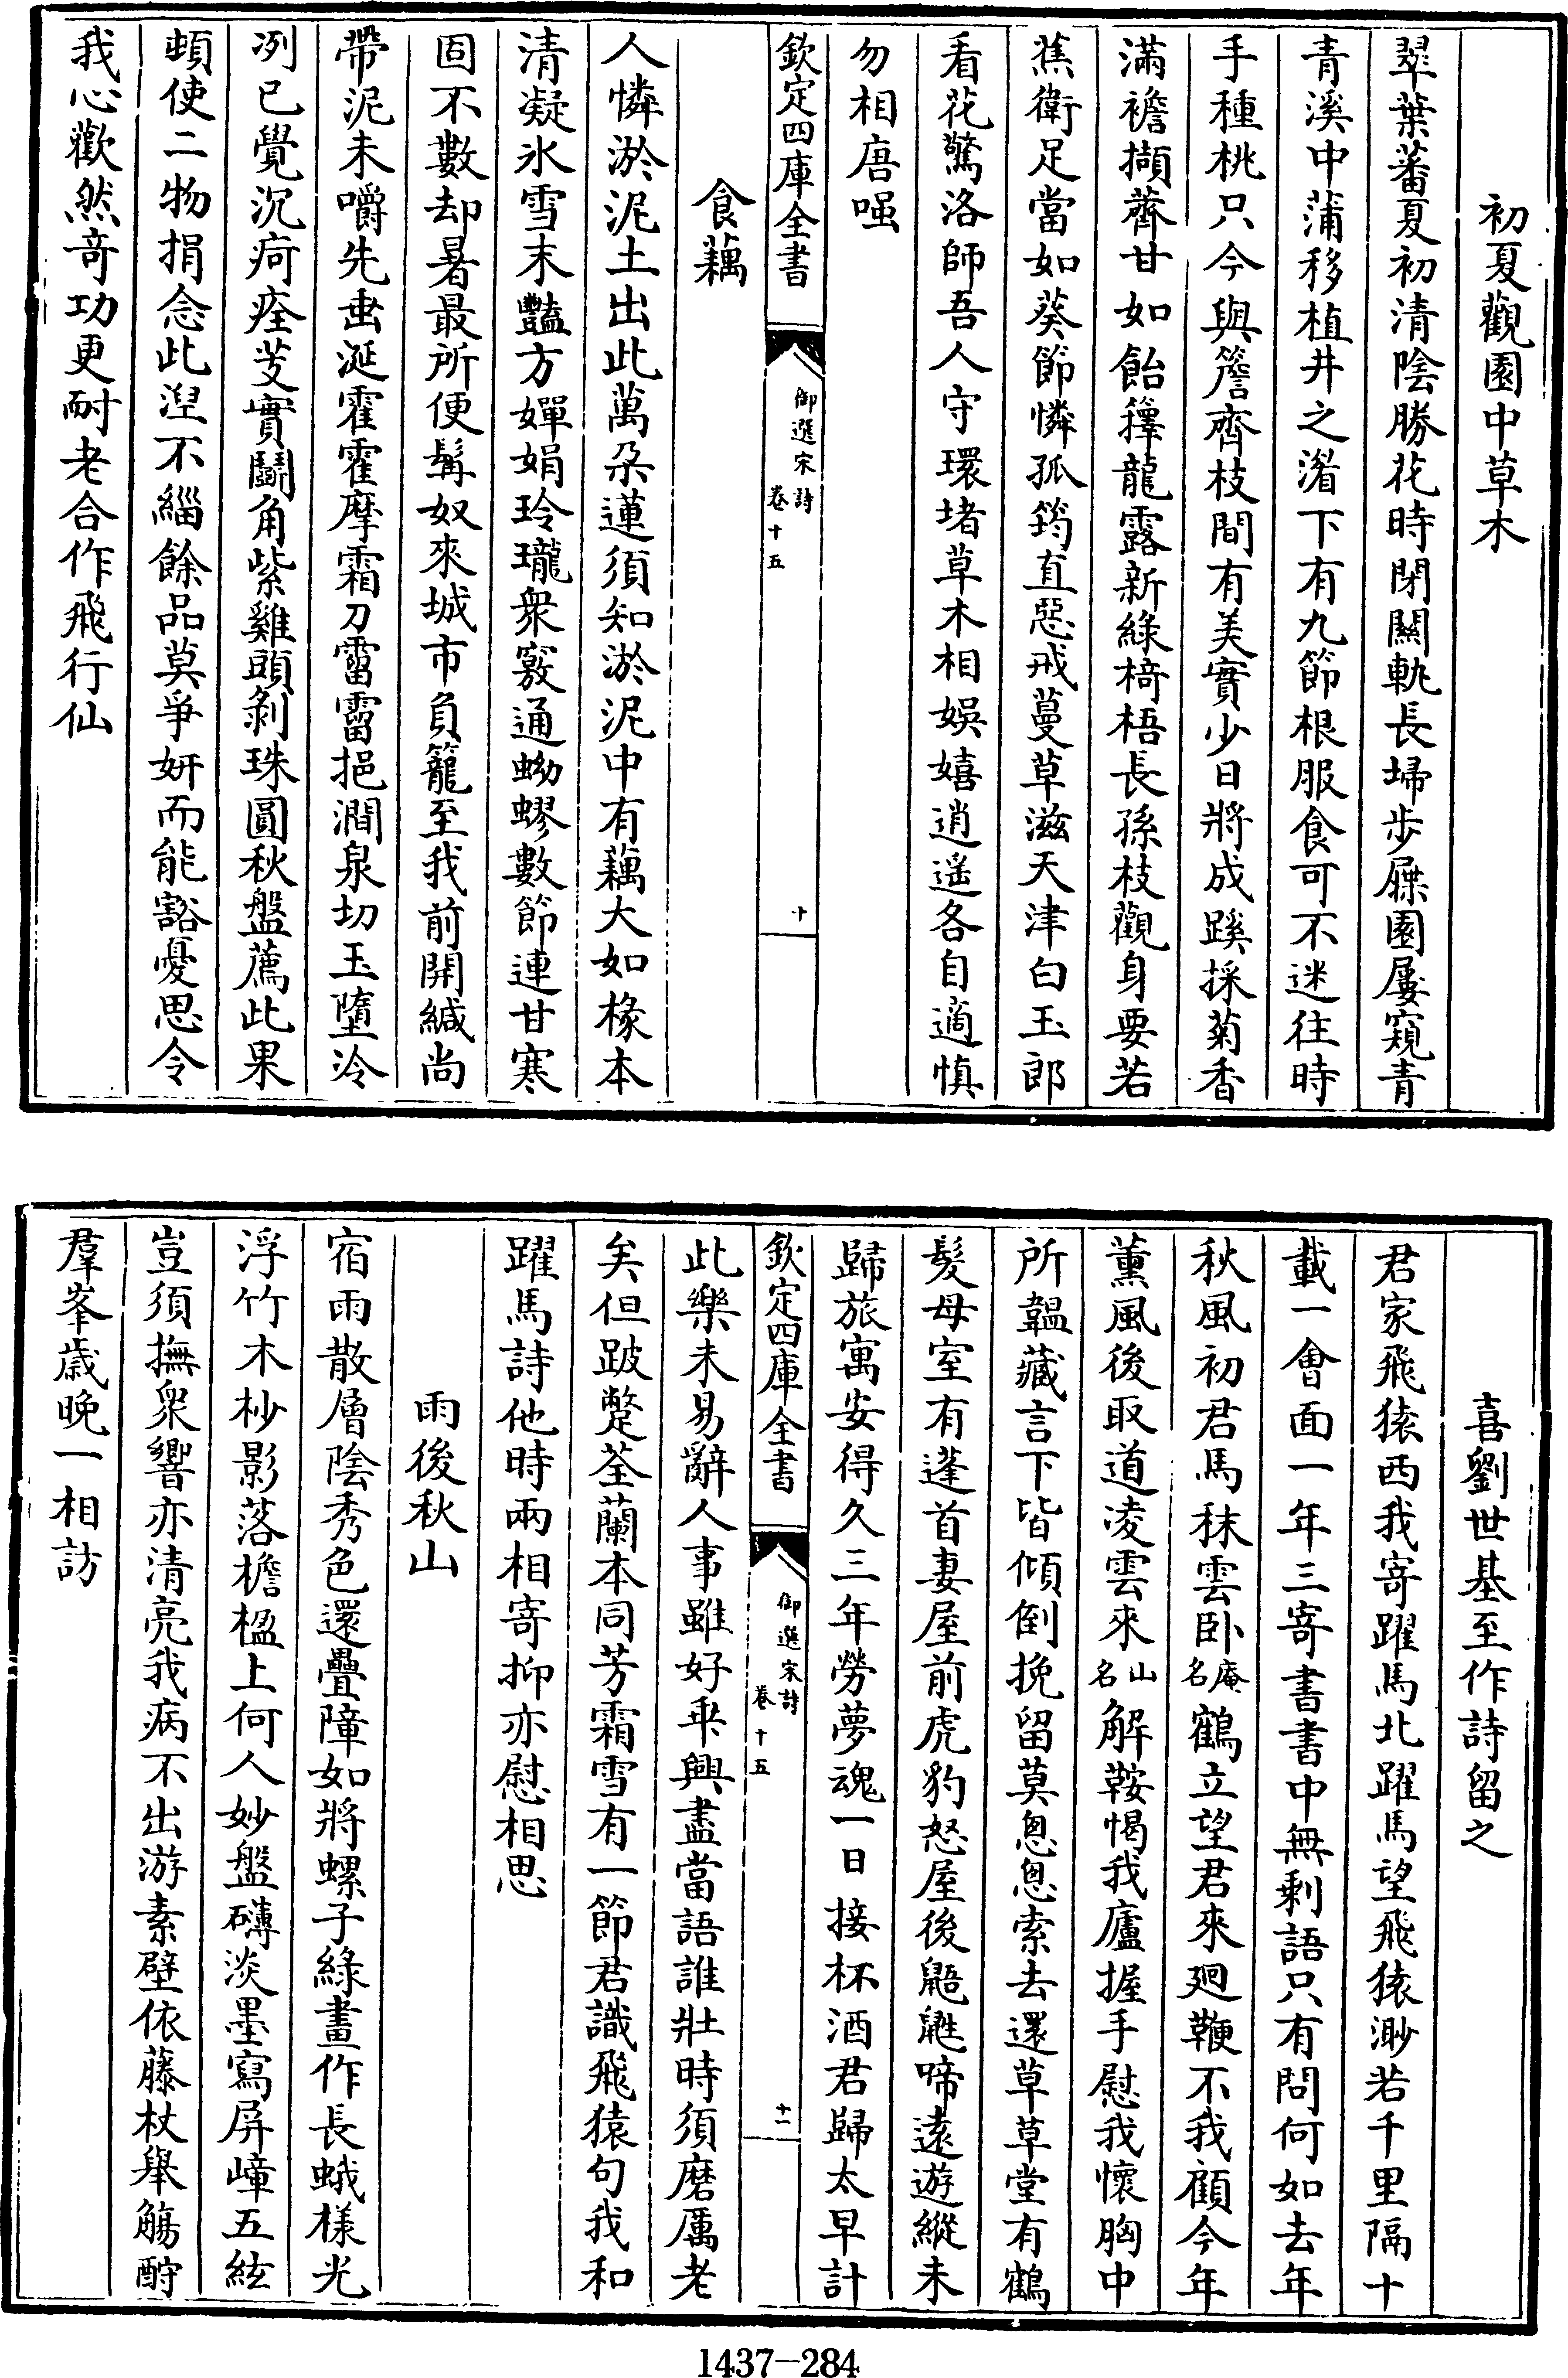 初夏觀園中草木
翠葉蕃夏初清陰勝花時閉關軌長埽步屧園屢窺青
青溪中蒲移植井之湄下有九節根服食可不迷往時
手種桃只今與簷齊枝間有美實少日將成蹊採菊香
滿襜擷薺甘如飴籜龍露新綠椅梧長孫枝觀身要若
蕉衛足當如葵節憐孤筠直惡戒蔓草滋天津白玉郎
看花驚洛師吾人守環堵草木相娛嬉逍遙各自適慎
勿相唐嗤
欽定四庫全書
御選宋詩
卷十五
十
食藕
人憐淤泥土出此萬朶蓮須知淤泥中有藕大如椽本
清凝氷雪末豔方嬋娟玲瓏衆竅通蚴蟉數節連甘寒
固不數却暑最所便髯奴來城市負籠至我前開緘尚
帶泥未嚼先垂涎霍霍摩霜刀霤霤挹澗泉切玉墮泠
冽已覺沉疴痊芰實鬬角紫雞頭剝珠圓秋盤薦此果
頓使二物捐念此湼不緇餘品莫爭妍而能豁憂思令
我心歡然奇功更耐老合作飛行仙
喜劉世基至作詩留之
君家飛猿西我寄躍馬北躍馬望飛猿渺若千里隔十
載一會面一年三寄書書中無剩語只有問何如去年
秋風初君馬秣雲卧庵名鶴立望君來廻鞭不我顧今年
薰風後取道凌雲來山名解鞍愒我廬握手慰我懷胸中
所韞藏言下皆傾倒挽留莫悤悤索去還草草堂有鶴
髮母室有蓬首妻屋前虎豹怒屋後鼯鼪啼遠遊縱未
歸旅寓安得久三年勞夢魂一日接杯酒君歸太早計
欽定四庫全書
御選宋詩
卷十五
十一
此樂未易辭人事雖好乖興盡當語誰壯時須磨厲老
矣但跛蹩荃蘭本同芳霜雪有一節君識飛猿句我和
躍馬詩他時兩相寄抑亦慰相思
雨後秋山
宿雨散層陰秀色還疊障如將螺子綠畫作長蛾樣光
浮竹木杪影落檐楹上何人妙盤礴淡墨寫屏嶂五絃
豈須撫衆響亦清亮我病不出游素壁依藤杖舉觴酹
羣峯歲晚一相訪
1437-284